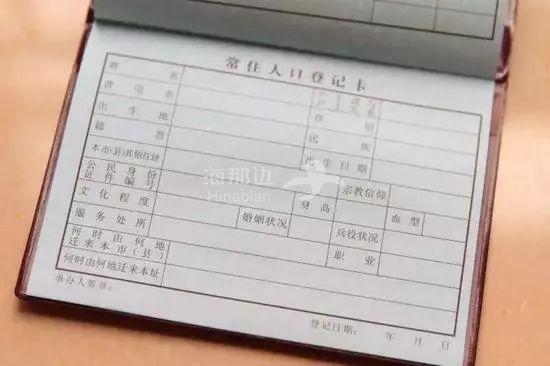 常住人口登记卡
姓 名
曾 用 名 性 别
出 生 地 民 族
籍 贯 出 生 日 期
本市(县)其他住址 宗教信仰
公 民 身 份
证 件 编 号 身 高 血 型
文 化 程 度 婚姻状况 兵役状况
服 务 处 所 职 业
何 时 由 何 地
迁 来 本 市 ( 县 )
何时由何地迁来本址
承办人签章:
登记日期: 年 月 日
海那边
Hinabian